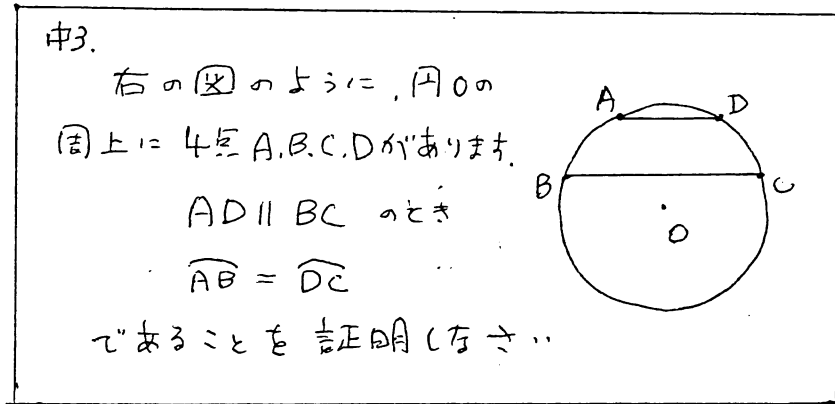 中3.
右の図のように、円Oの
周上に4点A.B.C.Dがあります.
AD∥BC のとき
AB = DC
であることを証明しなさい
A
D
B
C
O